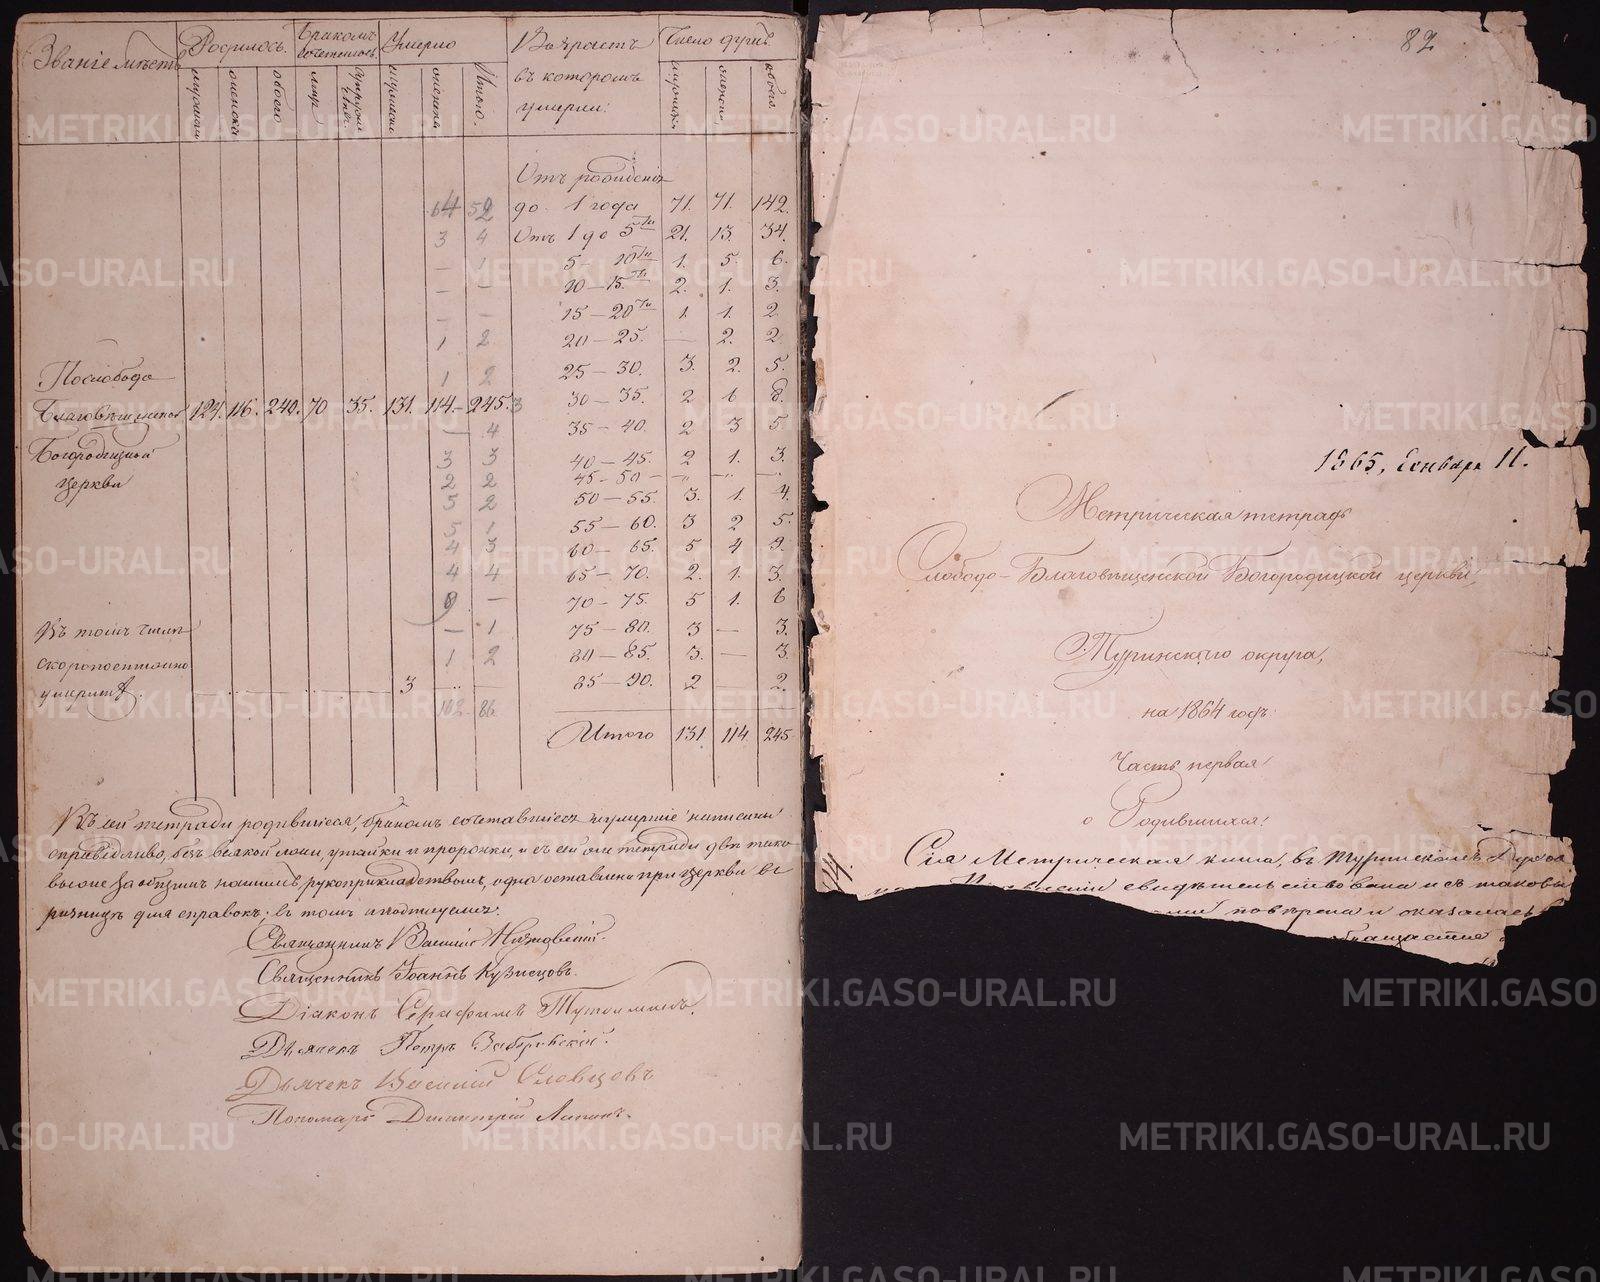 Званіе мѣстъ
Родилось.
Бракомъ сочеталось.
Умерло
Возрастъ въ которомъ умерли:
Число душъ
мужеска
женска
обоего
Итого.
64 52 Отъ рожденія до 1 года 71. 71. 142.
3 4 Отъ 1 до 5ти 21. 13. 34.
— 1 5 — 10ти 1. 5. 6.
— — 10 — 15ти 2. 1. 3.
— — 15 — 20ти 1. 1. 2
1 2 20 — 25. — 2. 2.
1 2 25 — 30. 3. 2. 5.
По слободо
Благовѣщенской 127. 116. 240. 70 35. 131. 114. 245. 3 30 — 35. 2 6 8.
— 4 35 — 40. 2 3 5.
Богородицкой
3 3 40 — 45. 2 1. 3.
церкви
2 2 45 — 50 — — —
5 2 50 — 55. 3. 1. 4.
5 1 55 — 60. 3 2 5.
4 3 60 — 65. 5 4 9.
4 4 65 — 70. 2. 1. 3.
9 — 70 — 75. 5 1. 6
Въ томъ числѣ — 1 75 — 80. 3 — 3.
скоропостижно 1 2 80 — 85. 3. — 3.
умершихъ. 3 85 — 90. 2 — 2.
102. 86
Итого 131 114 245.
Въ сей тетради родившіеся, бракомъ сочетавшіеся и умершіе написаны
справедливо, безъ всякой лжи, утайки и прописки, и съ сей же тетради двѣ тако-
выя за общимъ нашимъ рукоприкладствомъ, одна оставлена при церкви въ
ризницѣ для справокъ; въ томъ и подписуемся:
Священникъ Василій
Священникъ Іоаннъ Кузнецовъ.
Діаконъ Серафимъ Тутолминъ.
Дьячекъ Петръ
Дьячекъ Василій Словцовъ
Пономарь Димитрій Ляпинъ.
82
1865, Генваря 11.
Метрическая тетрадь
Слободо-Благовѣщенской Богородицкой церкви,
Туринскаго округа,
на 1864 годъ
Часть первая
о Родившихся.
Сія Метрическая книга, въ Туринскомъ Духов
свидѣтельствована и съ таковы
повѣрена и оказалась
METRIKI.GASO-URAL.RU